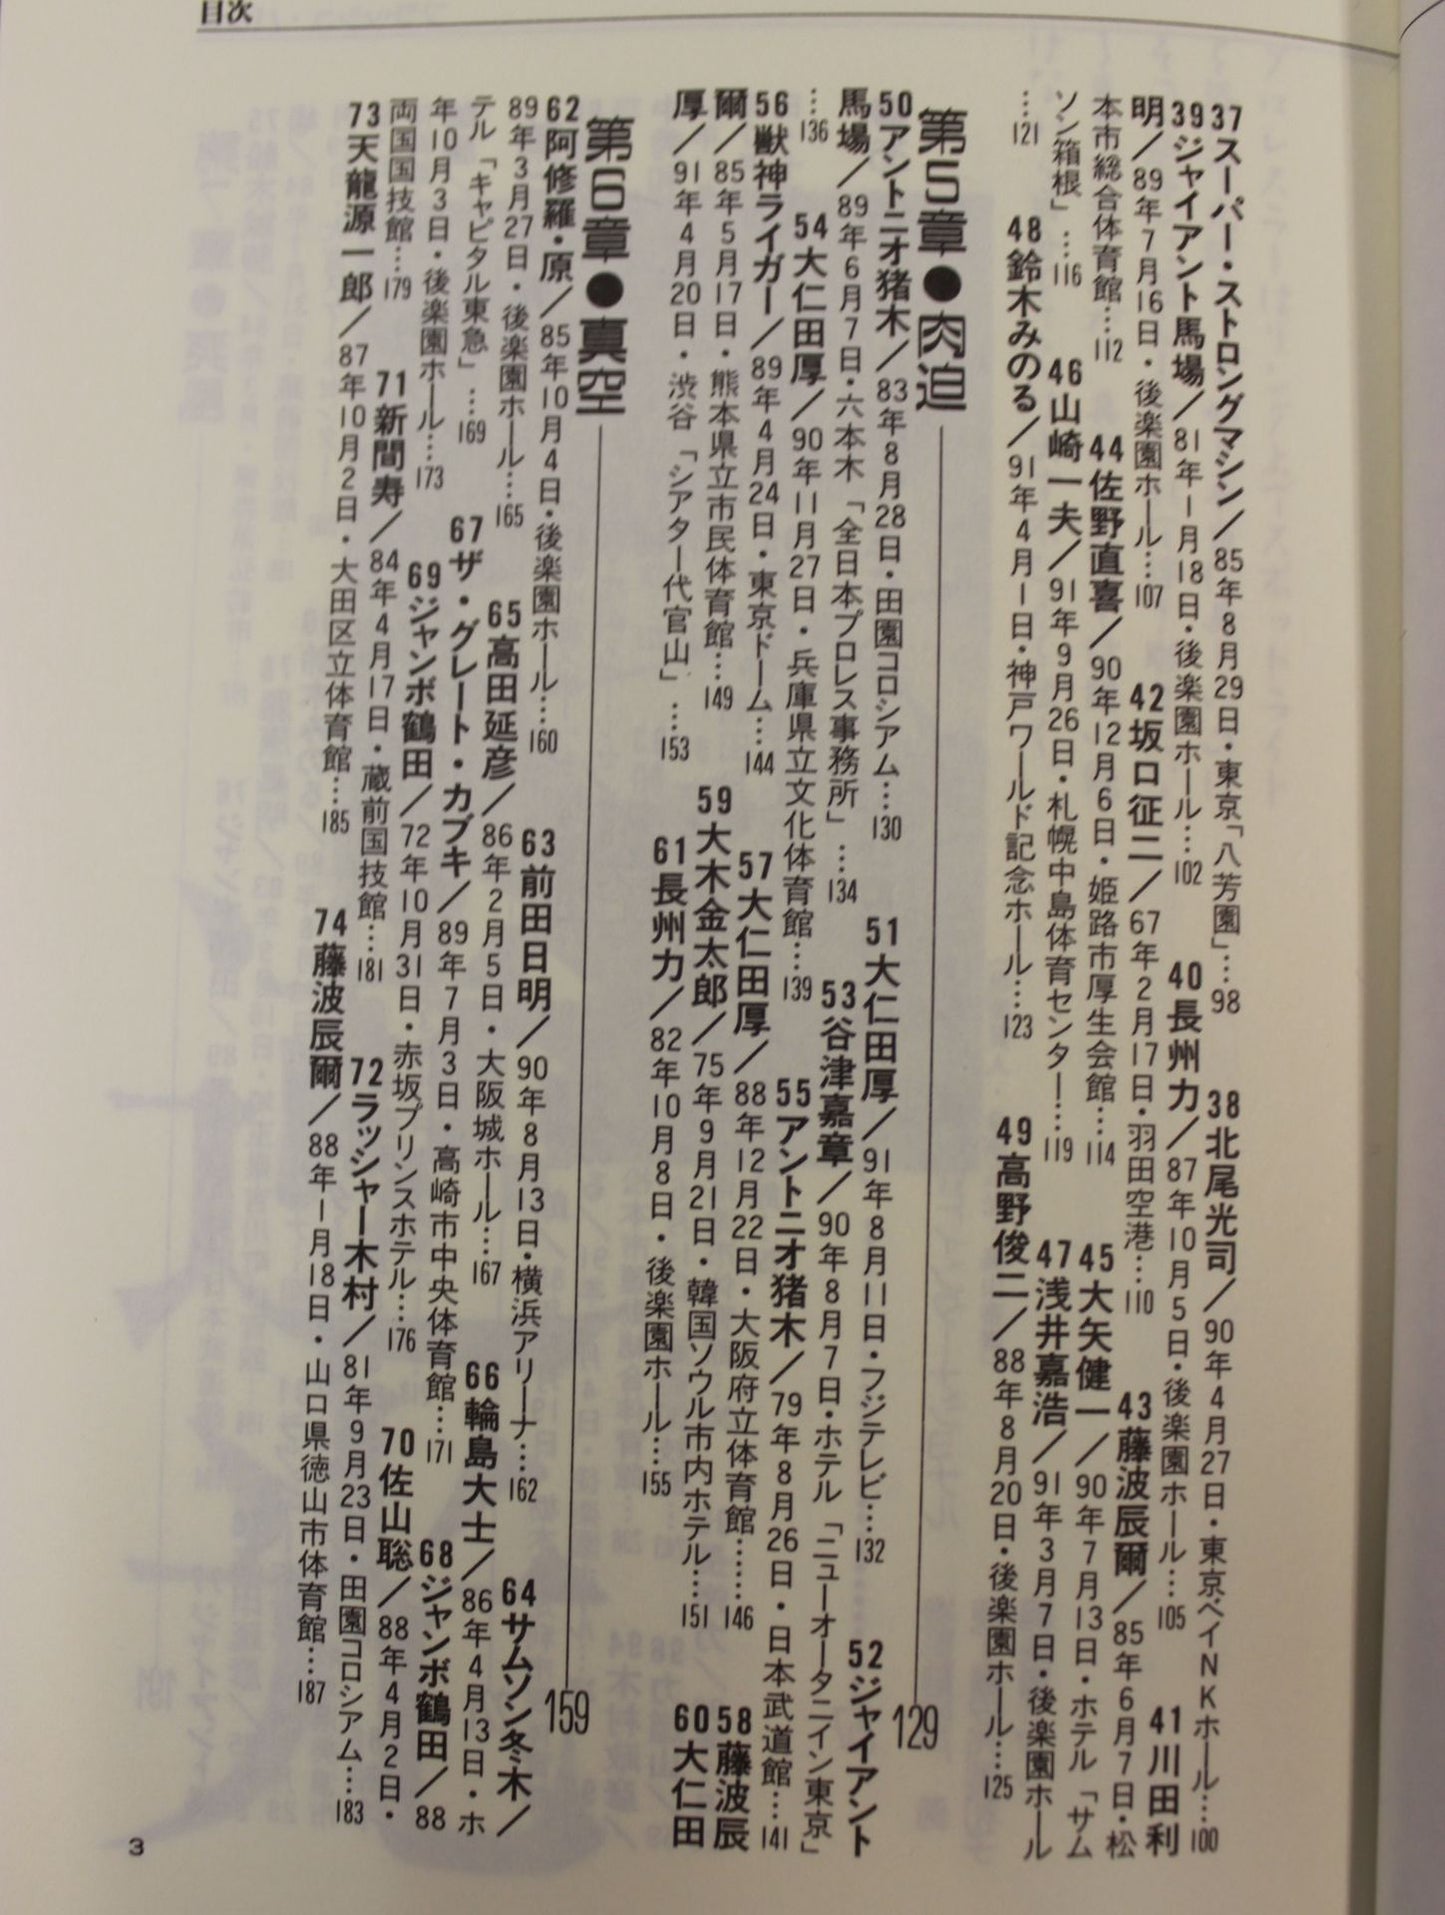 目次
37スーパー・ストロングマシン／85年8月29日・東京「八芳園」…98 38北尾光司／90年4月27日・東京ベイNKホール…100
39ジャイアント馬場／81年1月18日・後楽園ホール…102 40長州力／87年10月5日・後楽園ホール…105 41川田利
明／89年7月16日・後楽園ホール…107 42坂口征二／67年2月17日・羽田空港…110 43藤波辰爾／85年6月7日・松
本市総合体育館…112 44佐野直喜／90年12月6日・姫路市厚生会館…114 45大矢健一／90年7月13日・ホテル「サム
ソン箱根」…116 46山崎一夫／91年9月26日・札幌中島体育センター…119 47浅井嘉浩／91年3月7日・後楽園ホール
…121 48鈴木みのる／91年4月1日・神戸ワールド記念ホール…123 49高野俊二／88年8月20日・後楽園ホール…125
第5章●肉迫 129
50アントニオ猪木／83年8月28日・田園コロシアム…130 51大仁田厚／91年8月11日・フジテレビ…132 52ジャイアント
馬場／89年6月7日・六本木「全日本プロレス事務所」…134 53谷津嘉章／90年8月7日・ホテル「ニューオータニイン東京」
…136 54大仁田厚／90年11月27日・兵庫県立文化体育館…139 55アントニオ猪木／79年8月26日・日本武道館…141
56獣神ライガー／89年4月24日・東京ドーム…144 57大仁田厚／88年12月22日・大阪府立体育館……146 58藤波辰
爾／85年5月17日・熊本県立市民体育館…149 59大木金太郎／75年9月21日・韓国ソウル市内ホテル…151 60大仁田
厚／91年4月20日・渋谷「シアター代官山」…153 61長州力／82年10月8日・後楽園ホール…155
第6章●真空 159
62阿修羅・原／85年10月4日・後楽園ホール…160 63前田日明／90年8月13日・横浜アリーナ…162 64サムソン冬木／
89年3月27日・後楽園ホール…165 65高田延彦／86年2月5日・大阪城ホール…167 66輪島大士／86年4月13日・ホ
テル「キャピタル東急」…169 67ザ・グレート・カブキ／89年7月3日・高崎市中央体育館…171 68ジャンボ鶴田／88
年10月3日・後楽園ホール…173 69ジャンボ鶴田／72年10月31日・赤坂プリンスホテル…176 70佐山聡／88年4月2日・
両国国技館…179 71新間寿／84年4月17日・蔵前国技館…181 72ラッシャー木村／81年9月23日・田園コロシアム…183
73天龍源一郎／87年10月2日・大田区立体育館…185 74藤波辰爾／88年1月18日・山口県徳山市体育館…187
3